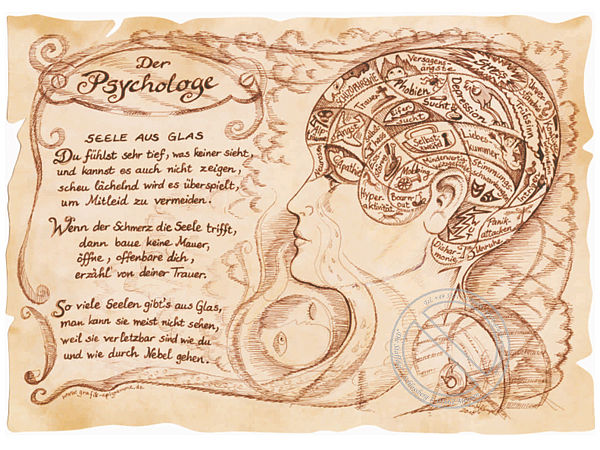 Der
Psychologe
SEELE AUS GLAS
Du fühlst sehr tief, was keiner sieht,
und kannst es auch nicht zeigen,
scheu lächelnd wird es überspielt,
um Mitleid zu vermeiden.
Wenn der Schmerz die Seele trifft,
dann baue keine Mauer,
öffne, offenbare dich,
erzähl von deiner Trauer.
So viele Seelen gibt's aus Glas,
man kann sie meist nicht sehen,
weil sie verletzbar sind wie du
und wie durch Nebel gehen.
www.grafik-epigramme.de
Versagens-
ängste
Phobien
Stress
SCHIZOPHRENIE
Trauer
Sucht
Depression
Eifer
sucht
Angst
Selbst
Liebes
kummer
Mobbing
Minderwertig
Stimmungs-
Empathie
Hyper-
aktivität
Bourn
out
Panik-
attacken
Unruhe
Dishar-
monie